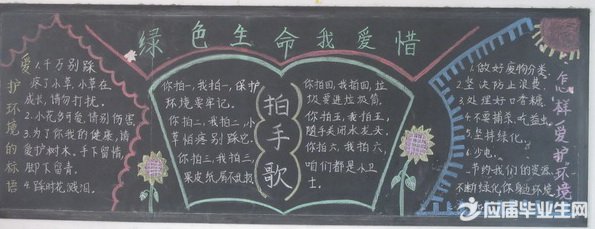 绿色生命我爱惜
爱护环境的标语
1.千万别踩
疼了小草,小草在
成长,请勿打扰。
2.小花多可爱,请别伤害
3.为了你我的健康,请
爱护树木。手下留情,
脚下留青。
4.踩时花溅泪。
你拍一,我拍一,保护
环境要牢记。
你拍二,我拍二,小
草怕疼别踩它。
你拍三,我拍三,
果皮纸屑不乱扔
拍手歌
你拍四,我拍四,垃
圾要进垃圾筒。
你拍五,我拍五,
随手关闭水龙头。
你拍六,我拍六,
咱们都是小卫
士。
怎样爱护环境
1.做好废物分类。
2.坚决防止浪费。
3.处理好口香糖。
4.不要捕杀、吃益虫。
5.坚持绿化。
6.少电
节约我们的资源,
不断绿化,你身边环境
应届毕业生网